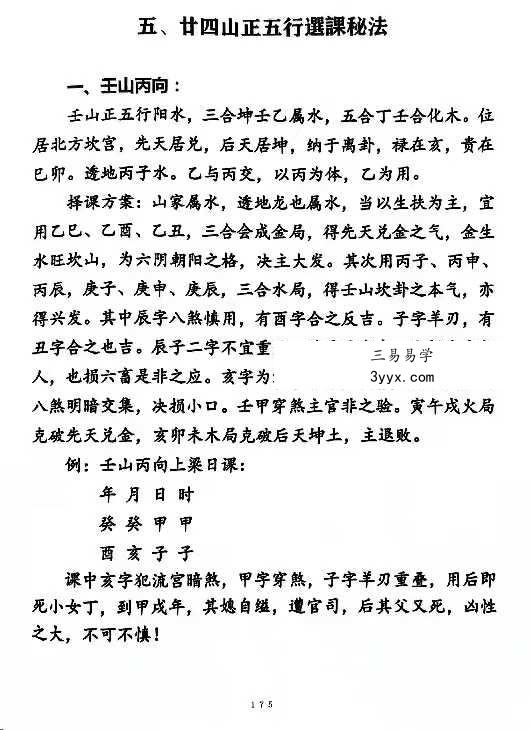 五、廿四山正五行選課秘法
一、壬山丙向：
壬山正五行阳水，三合坤壬乙属水，五合丁壬合化木。位
居北方坎宫，先天居兑，后天居坤，纳于离卦，禄在亥，贵在
巳卯。透地丙子水。乙与丙交，以丙为体，乙为用。
择课方案：山家属水，透地龙也属水，当以生扶为主，宜
用乙巳、乙酉、乙丑，三合会成金局，得先天兑金之气，金生
水旺坎山，为六阴朝阳之格，决主大发。其次用丙子、丙申、
丙辰，庚子、庚申、庚辰，三合水局，得壬山坎卦之本气，亦
得兴发。其中辰字八煞慎用，有酉字合之反吉。子字羊刃，有
丑字合之也吉。辰子二字不宜重
三易易学
人，也损六畜是非之应。亥字为
3yyx.com
八煞明暗交集，决损小口。壬甲穿煞主官非之验。寅午戌火局
克破先天兑金，亥卯未木局克破后天坤土，主退败。
例：壬山丙向上梁日课：
年 月 日 时
癸 癸 甲 甲
酉 亥 子 子
课中亥字犯流宫暗煞，甲字穿煞，子字羊刃重叠，用后即
死小女丁，到甲戌年，其媳自缢，遭官司，后其父又死，凶性
之大，不可不慎！
175